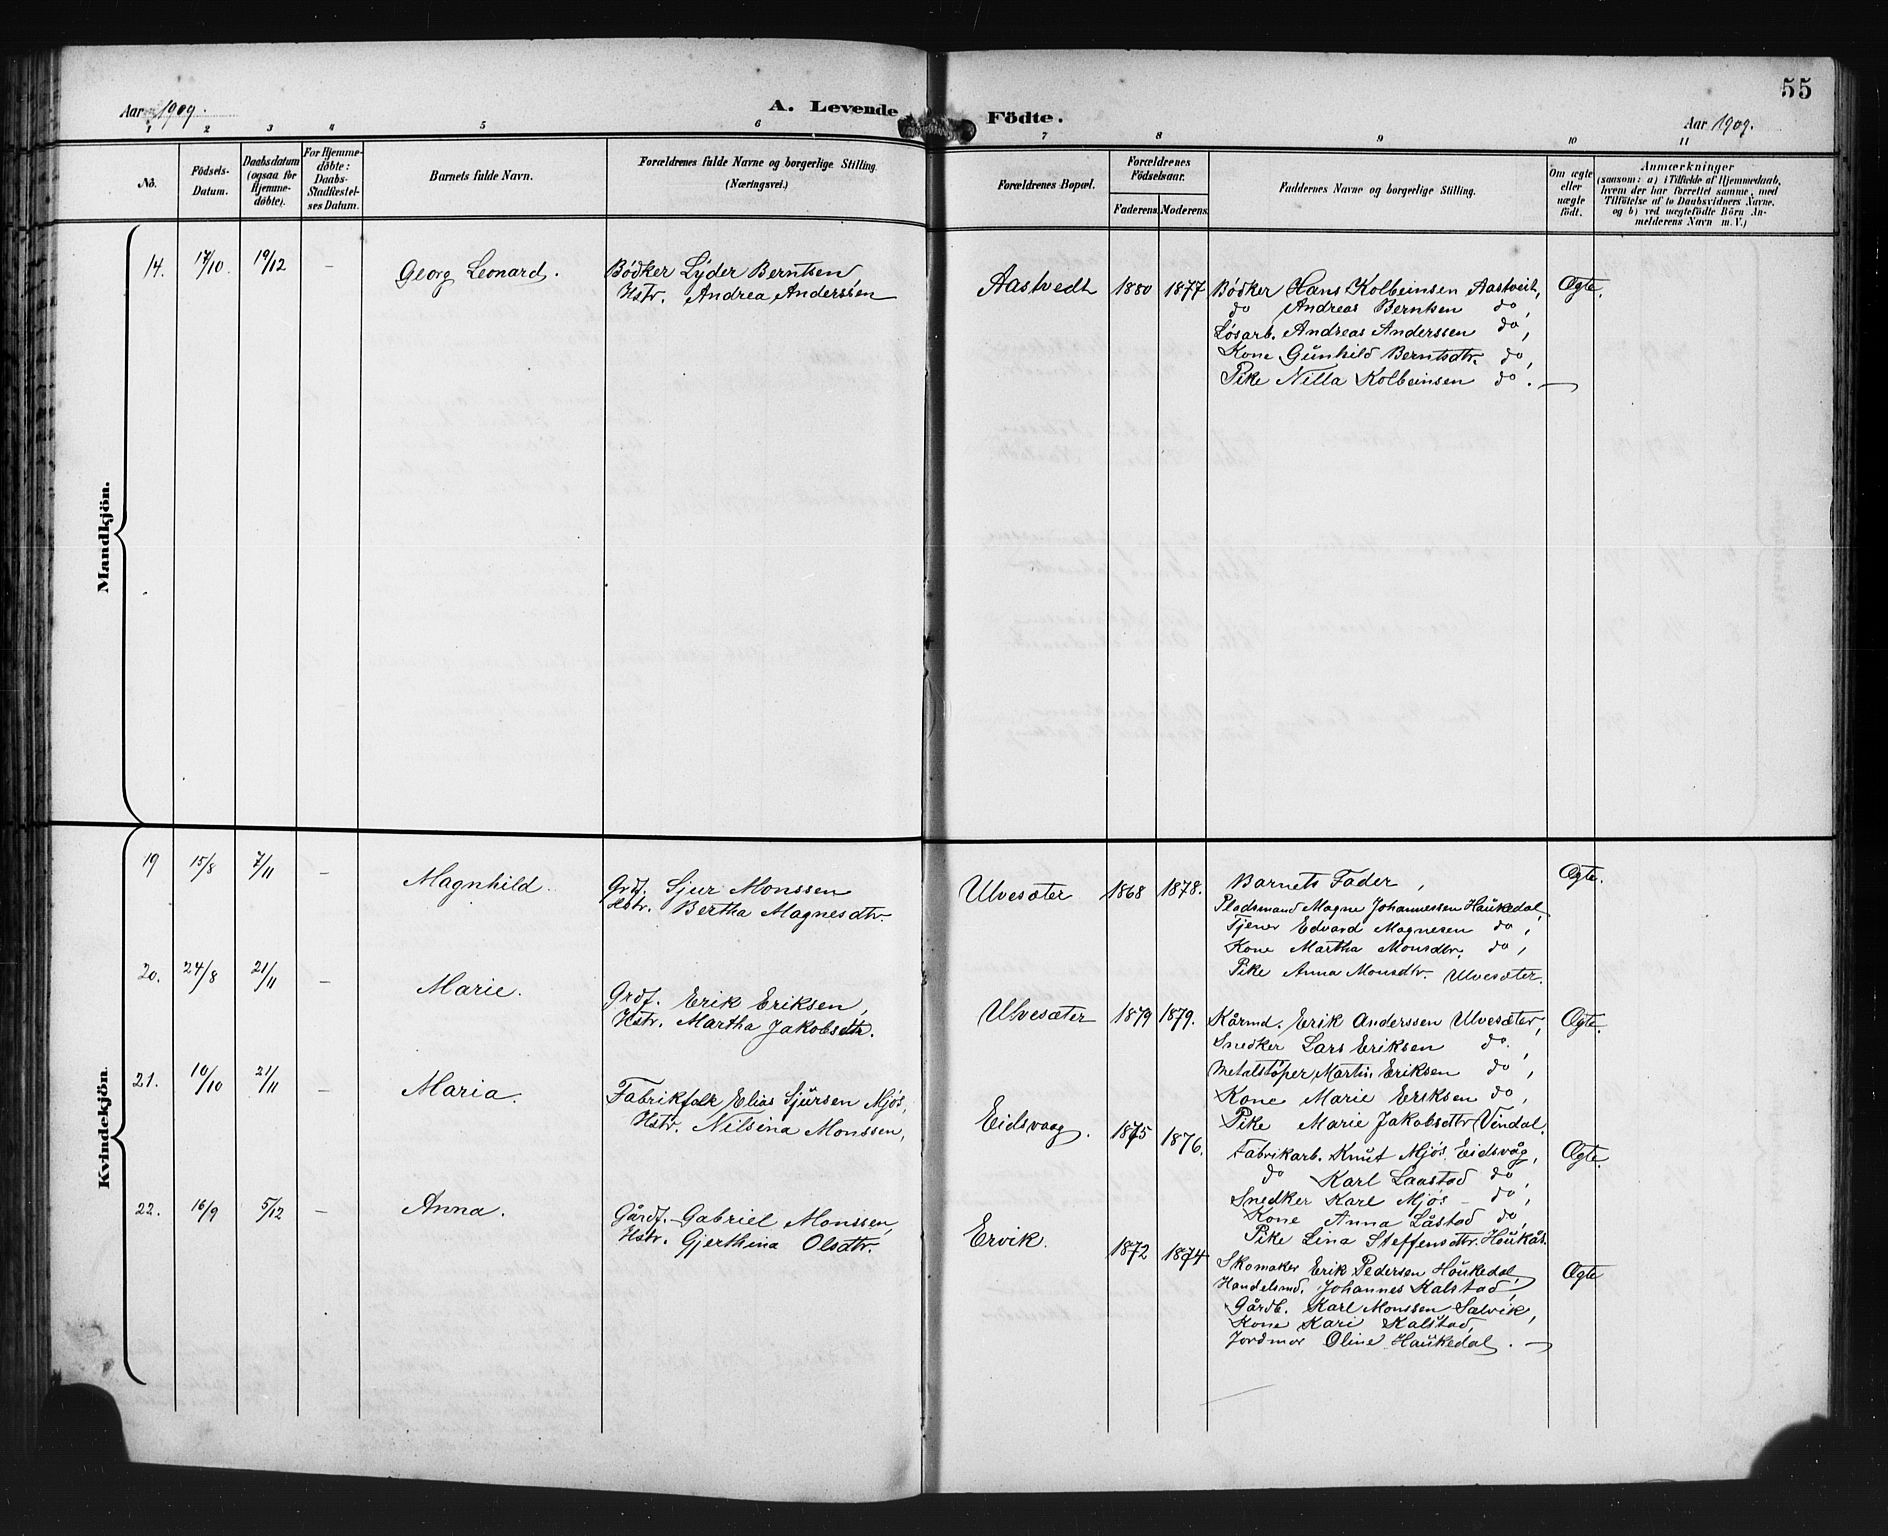 55
Aar 1909.
A. Levende Födte.
Aar 1909.
1 2 3 4 5 6 7 8 9 10 11
No.
Födsels-
Datum.
Daabsdatum
(ogsaa for
Hjemme-
döbte).
For Hjemme-
döbte:
Daabs-
Stadfæstel-
ses Datum.
Barnets fulde Navn.
Forældrenes fulde Navne og borgerlige Stilling
(Næringsvei.)
Forældrenes Bopæl.
Forældrenes
Födselsaar.
Faderens. Moderens.
Faddernes Navne og borgerlige Stilling.
Om ægte
eller
uægte
födt.
Anmærkninger
(saasom: a) i Tilfælde af Hjemmedaab,
hvem der har forrettet samme, med
Tilföielse af to Daabsvidners Navne.
og b) ved uægtefödte Börn An-
melderens Navn m. V.)
Mandkjön.
14. 17/10. 19/12 – Georg Leonard.
Bödker Lyder Berntsen
Hstr. Andrea Anderssen
Aastvedt 1880 1877
Bödker Hans Kolbeinsen Aastveit,
do Andreas Berntsen do,
Løsarb. Andreas Anderssen do,
Kone Gunhild Berntsdtr. do,
Pike Nilla Kolbeinsen do. —
Ægte.
Kvindekjön.
19 15/8 7/11 – Magnhild.
Grdf. Sjur Monssen
Hstr. Bertha Magnesdtr.
Ulvesæter 1868 1878.
Barnets Fader,
Pladsmand Magne Johannessen Haukedal,
Tjener Edvard Magnesen do,
Kone Martha Monsdtr. do,
Pike Anna Monsdtr. Ulvesæter.
Ægte.
20. 24/8 21/11 – Marie.
Grdf. Erik Eriksen,
Hstr. Martha Jakobsdtr.
Ulvesæter 1879 1879.
Kårmd. Erik Anderssen Ulvesæter,
Snedker Lars Eriksen do.,
Metalstöper Martin Eriksen do,
Kone Marie Eriksen do,
Pike Marie Jakobsdtr Vindal.
Ægte.
21. 10/10 21/11 – Maria.
Fabrikfolk Elias Sjursen Mjös,
Hstr. Nilsina Monssen,
Eidsvaag. 1875 1876.
Fabrikarb. Knut Mjös Eidsvåg,
do Karl Laastad do,
Snedker Karl Mjös – do,
Kone Anna Låstad do,
Pike Lina Steffensdtr. Haukås.
Ægte.
22. 16/9 5/12 – Anna.
Gårdf. Gabriel Monssen,
Hstr. Gjerthina Olsdtr.
Ervik. 1872 1874
Skomaker Erik Pedersen Haukedal,
Handelsmd. Johannes Kalstad,
Gårdb. Karl Monssen Salvik,
Kone Kari Kalstad,
Jordmor Oline Haukedal. —
Ægte